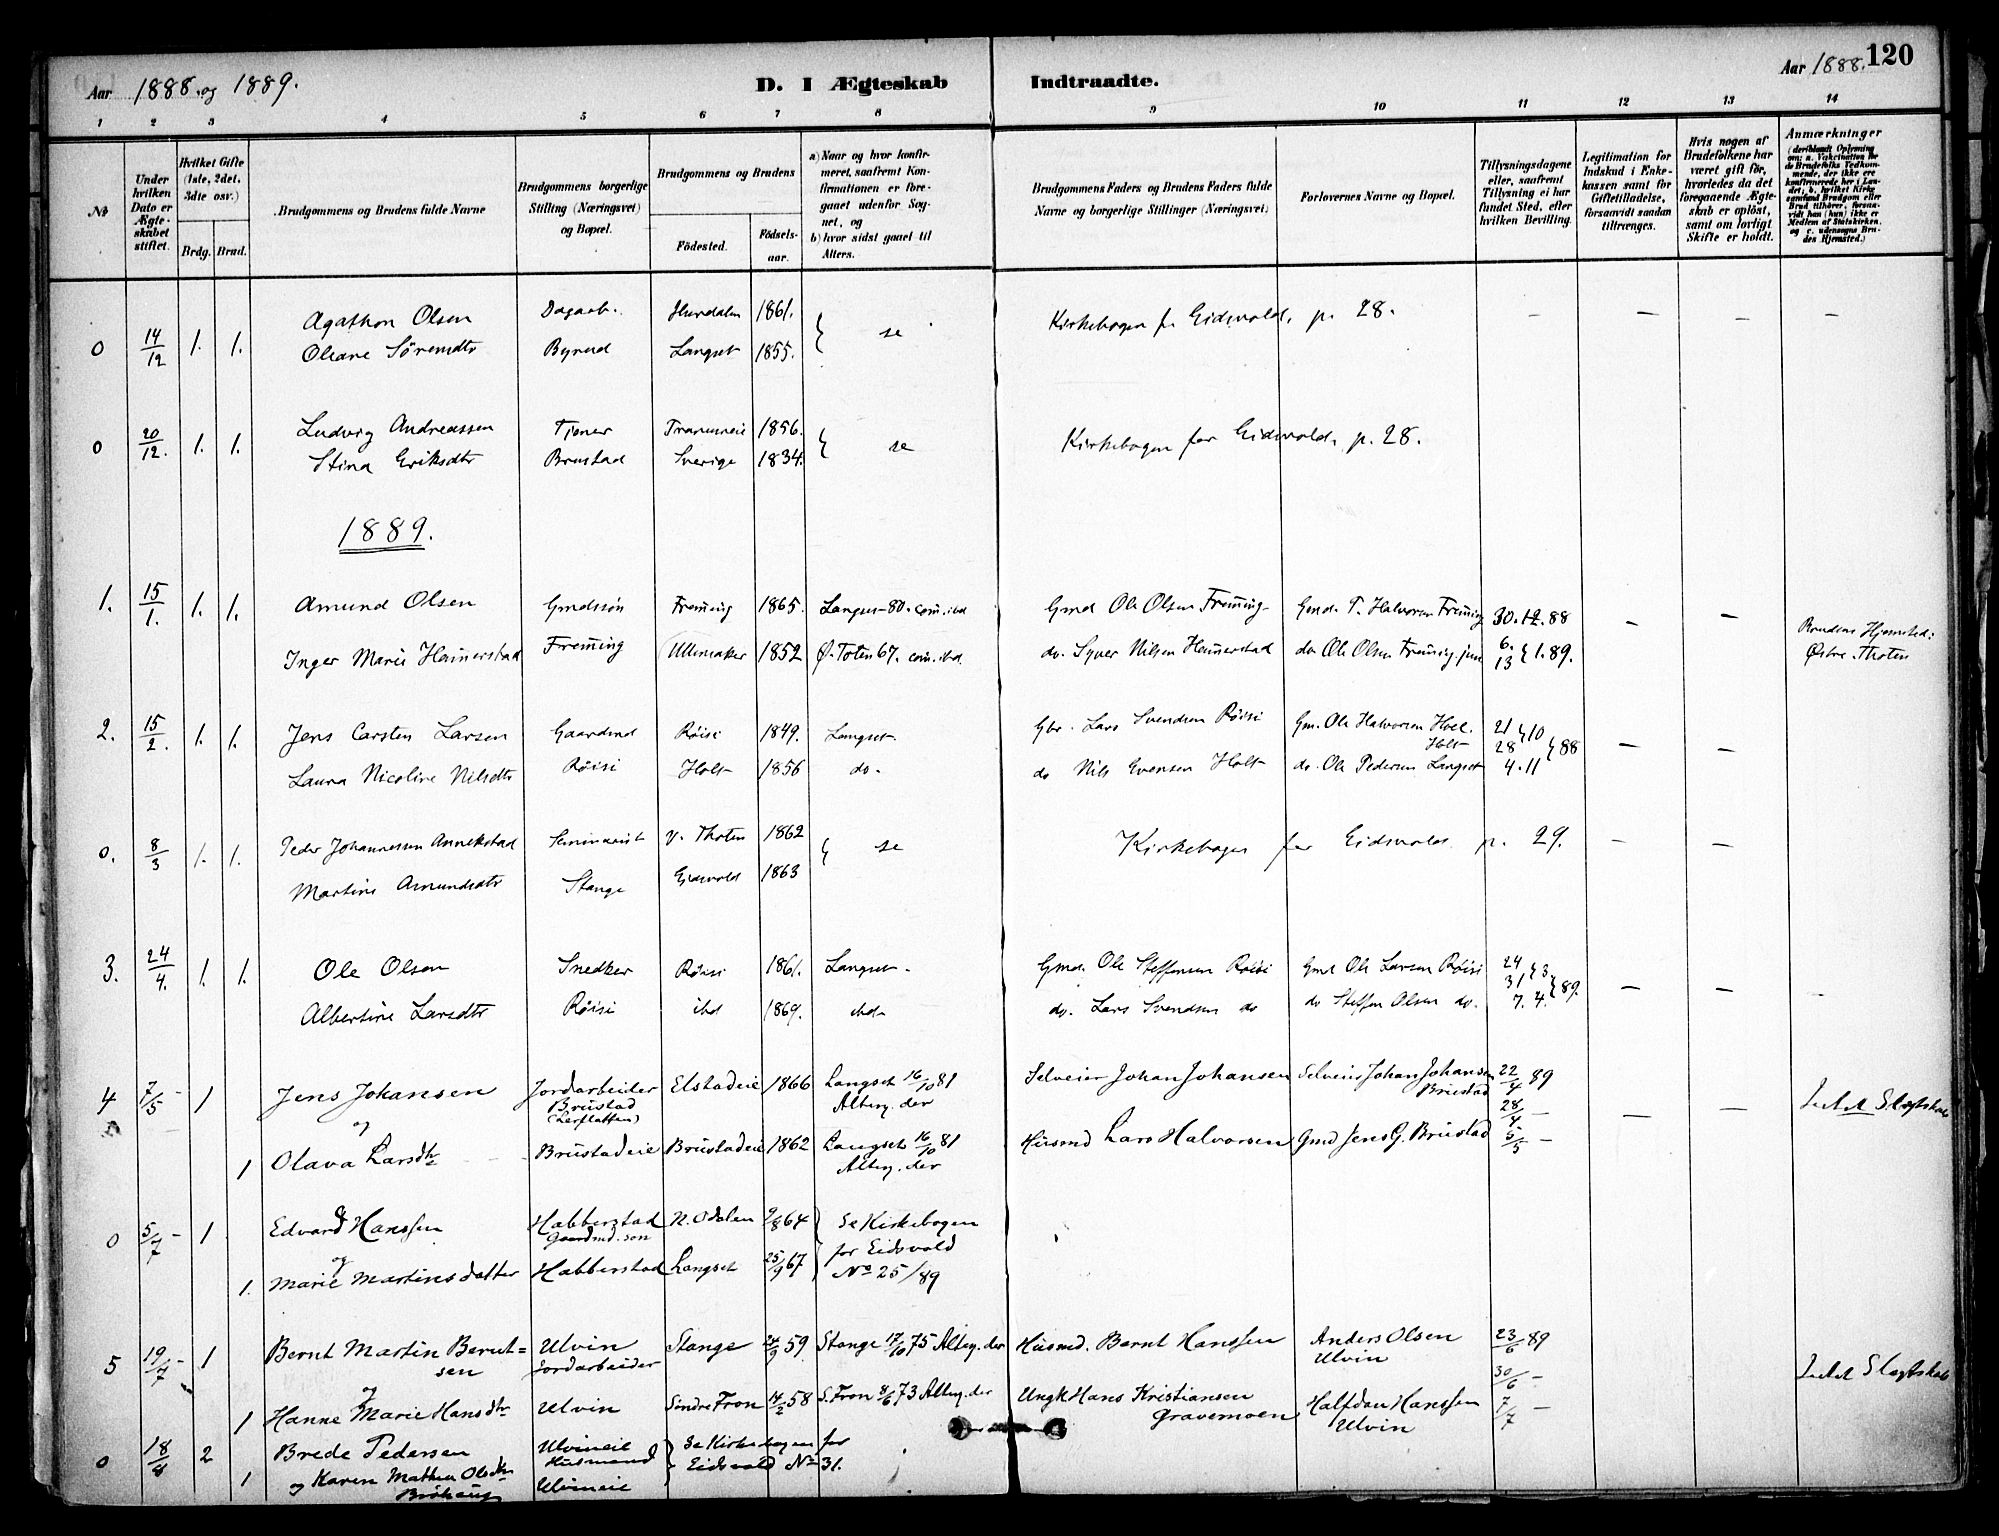 Aar 1888. og 1889.
D. I Ægteskab Indtraadte.
Aar 1888. 120
1 2 3 4 5 6 7 8 9 10 11 12 13 14
№
Under hvilken Dato er Ægteskabet stiftet.
Hvilket Gifte (1ste, 2det, 3die osv.)
Brdg. Brud.
Brudgommens og Brudens fulde Navne
Brudgommens borgerlige Stilling (Næringsvei) og Bopæl.
Brudgommens og Brudens
Fødested. Fødselsaar.
a) Naar og hvor konfirmeret, saafremt Konfirmationen er foregaaet udenfor Sognet, og
b) hvor sidst gaaet til Alters.
Brudgommens Faders og Brudens Faders fulde Navne og borgerlige Stillinger (Næringsvei)
Forlovernes Navne og Bopæl.
Tillysningsdagene eller, saafremt Tillysning ei har fundet Sted, efter hvilken Bevilling.
Legitimation for Indskud i Enkekassen samt for Giftetilladelse, forsaavidt saadan tiltrænges.
Hvis nogen af Brudefolkene har været gift før, hvorledes da det foregaaende Ægteskab er opløst, samt om lovligt Skifte er holdt.
Anmærkninger (deriblandt Oplysning om: a. Vakcination for de Brudefolks Vedkommende, der ikke ere konfirmerede her i Landet; b. hvilket Kirkesamfund Brudgom eller Brud tilhører, forsaavidt han (hun) ikke er Medlem af Statskirken, og c. udensogns Brudes Hjemsted.)
0 14/12 1. 1. Agathon Olsen Dagarb. Hurdalen 1861. } se Kirkebogen fr Eidsvold, p. 28. — — — —
Oleane Sørensdtr Byrud Langset 1855.
0 20/12. 1. 1. Ludvig Andreassen Tjener 1856. } se Kirkebogen for Eidsvold, p. 28.
Stina Eriksdtr Brustad Sverige 1834.
1889.
1. 15/1. 1. 1. Amund Olsen Gmdssøn Freming 1865. Langset 80. com. ibd Gmd Ole Olsen Freming Gmd. T. Halvorsen Freming 30.12.88 — —
Inger Marie Hammerstad Freming Ullensaker 1852 Ø. Toten 67. com. ibd. do. Syver Nilsen Hammerstad do Ole Olsen Freming jun 6. 13 } 1. 89. Brudens Hjemsted: Østre Thoten
2. 15/2. 1. 1. Jens Carsten Larsen Gaardmd Røisi 1849. Langset. Gbr. Lars Svendsen Røisi Gm. Ole Halvorsen Hoel. Holt 21 28 } 10 4. 11 } 88 — —
Laura Nicoline Nilsdtr Røisi Holt 1856 do. do Nils Evensen Holt do. Ole Pedersen Langset
0. 8/3 1. 1. Peder Johannessen Annekstad Seminarist V. Thoten 1862 } se Kirkebogen for Eidsvold p. 29. — —
Martine Amundsdtr Stange Eidsvold 1863
3. 24/4. 1. 1. Ole Olsen Snedker Røisi 1861. Langset. Gmd. Ole Steffensen Røisi Gmd Ole Larsen Røisi 24 31 } 3 7. 4. } 89. — —
Albertine Larsdtr Røisi ibd 1869. ibd. do. Lars Svendsen do do Steffen Olsen do.
4 7/5 — 1 Jens Johansen Jordarbeider Brustad (Lerflatten) Elstadeie 1866 Langset 16/10 81 Alterg. der Selveier Johan Johansen Selveier Johan Johansen Brustad 22/4 89 — — Intet Slegtskab
og 28/4 —
1 Olava Larsdtr Brustadeie Brustadeie 1862 Langset 16/10 81 Alterg. der Husmd Lars Halvorsen Gmd Jens G. Brustad 5/5 —
0 5/7 — 1 Edvard Hanssen Habberstad Gaardmd. søn N. Odalen 9/8 64 } Se Kirkebogen
og for Eidsvold
1. Marie Martinsdatter Habberstad Langset 25/9 67 No 25/89
5 19/7 — 1 Bernt Martin Berntsen Ulvin Jordarbeider Stange 24/9 59 Stange 17/10 75 Alterg. der Husmd. Bernt Hanssen Anders Olsen Ulvin 23/6 89
og 30/6 — Intet Slegtskab
1 Hanne Marie Hansdtr Ulvin Søndre Fron 14/2 58 S. Fron 8/6 73 Alterg. der Ungk Hans Kristiansen Gravemoen Halfdan Hanssen Ulvin 7/7 —
0 18/8 2 Brede Pedersen Ulvineie Husmand } Se Kirkebogen for
1 og Karen Mathea Olsdtr Ulvineie Eidsvold No 31.